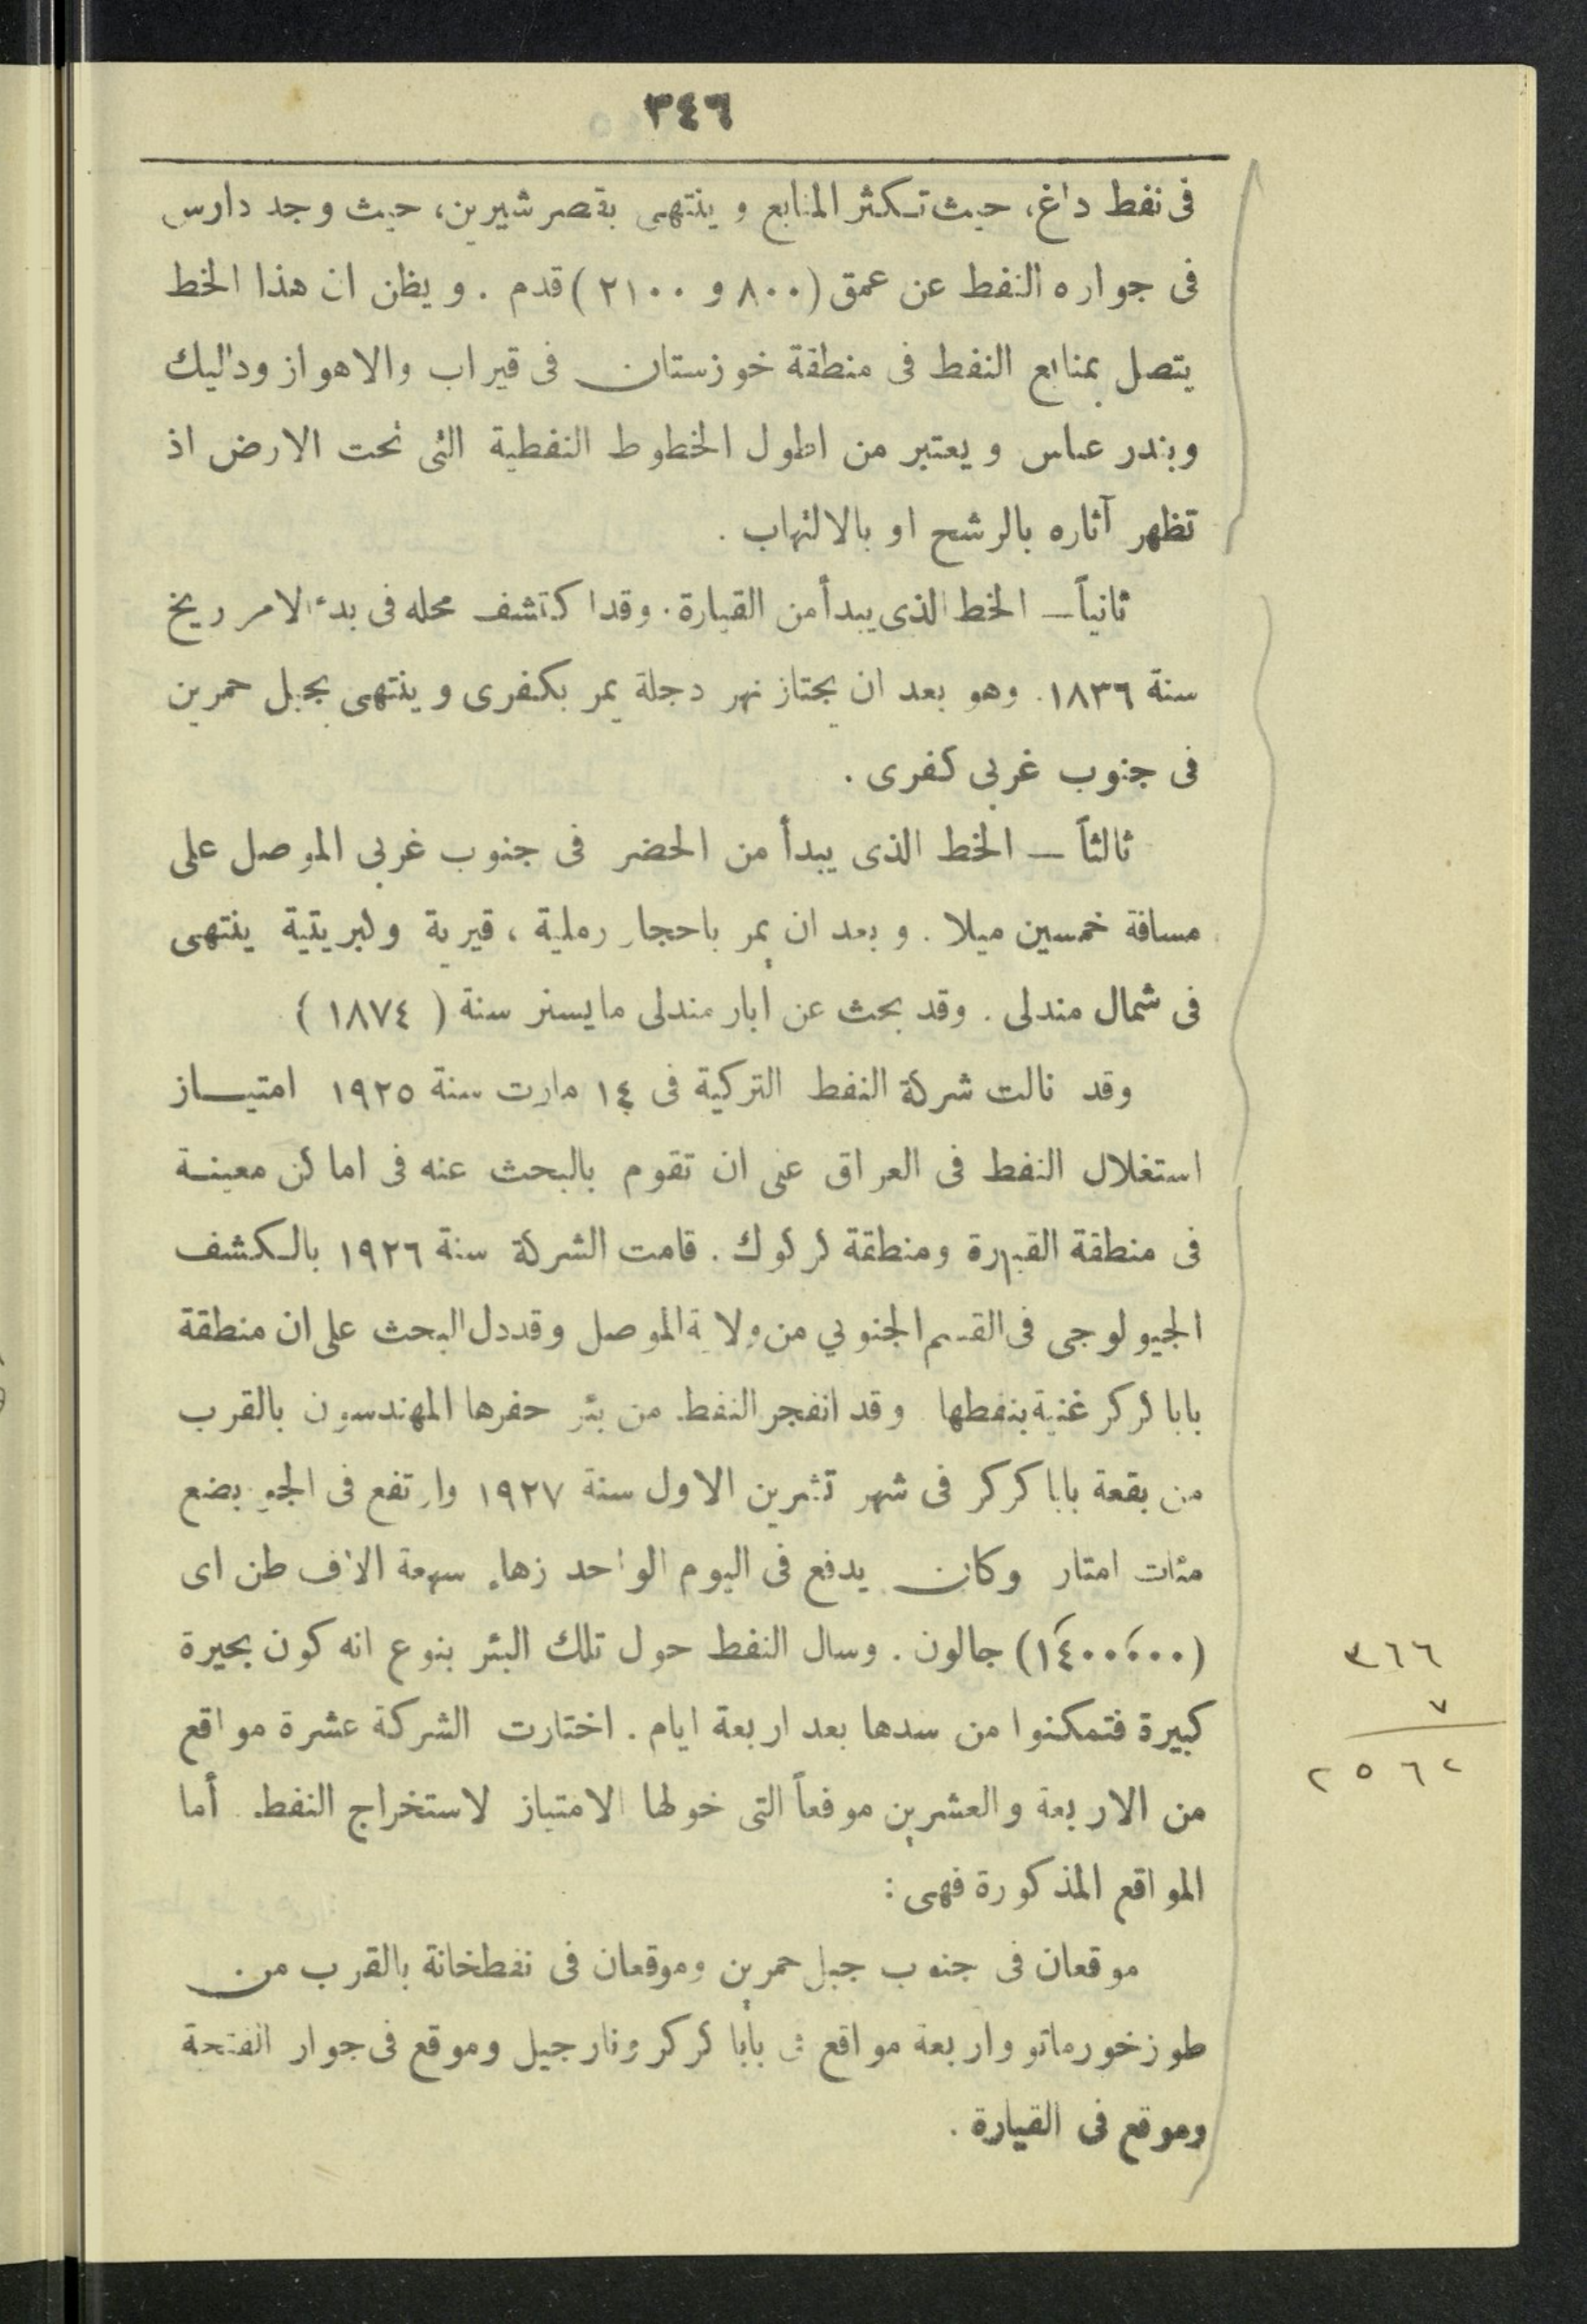 ٣٤٦
فى نفط داغ، حيث تكثر المنابع وينتهى بقصر شيرين، حيث وجد دارس
فى جواره النفط عن عمق (٨٠٠ و ٢١٠٠) قدم . ويظن ان هذا الخط
يتصل بمنابع النفط فى منطقة خوزستان فى قيراب والاهواز ودالیك
وبندر عباس ويعتبر من اطول الخطوط النفطية التى تحت الارض اذ
تظهر آثاره بالرشح او بالالتهاب .
ثانياً — الخط الذى يبدأ من القيارة . وقد اكتشف محله فى بدء الامر ريخ
سنة ١٨٣٦. وهو بعد ان يجتاز نهر دجلة يمر بكفرى وينتهى بجبل حمرين
فى جنوب غربى كفرى .
ثالثاً — الخط الذى يبدأ من الحضر فى جنوب غربى الموصل على
مسافة خمسين ميلا . وبعد ان يمر باحجار رملية ، قيرية وكبريتية ينتهى
فى شمال مندلى . وقد بحث عن ابار مندلى مايسنر سنة ( ١٨٧٤ )
وقد نالت شركة النفط التركية فى ١٤ مارت سنة ١٩٢٥ امتياز
استغلال النفط فى العراق على ان تقوم بالبحث عنه فى اماكن معينة
فى منطقة القيارة ومنطقة كركوك . قامت الشركة سنة ١٩٢٦ بالكشف
الجيولوجى فى القسم الجنوبي من ولاية الموصل وقد دل البحث على ان منطقة
بابا كركر غنية بنفطها وقد انفجر النفط من بئر حفرها المهندسون بالقرب
من بقعة بابا كركر فى شهر تشرين الاول سنة ١٩٢٧ وارتفع فى الجو بضع
مئات امتار وكان يدفع فى اليوم الواحد زهاء سبعة الاف طن اى
(١٤٠٠٬٠٠٠) جالون . وسال النفط حول تلك البئر بنوع انه كون بحيرة
كبيرة فتمكنوا من سدها بعد اربعة ايام . اختارت الشركة عشرة مواقع
من الاربعة والعشرين موقعاً التى خولها الامتياز لاستخراج النفط . أما
المواقع المذكورة فهى :
موقعان فى جنوب جبل حمرين وموقعان فى نفطخانة بالقرب من
طوزخورماتو واربعة مواقع فى بابا كركر ونارجيل وموقع فى جوار الفتحة
وموقع فى القيارة .
٣٦٦
٧
٢٥٦٢